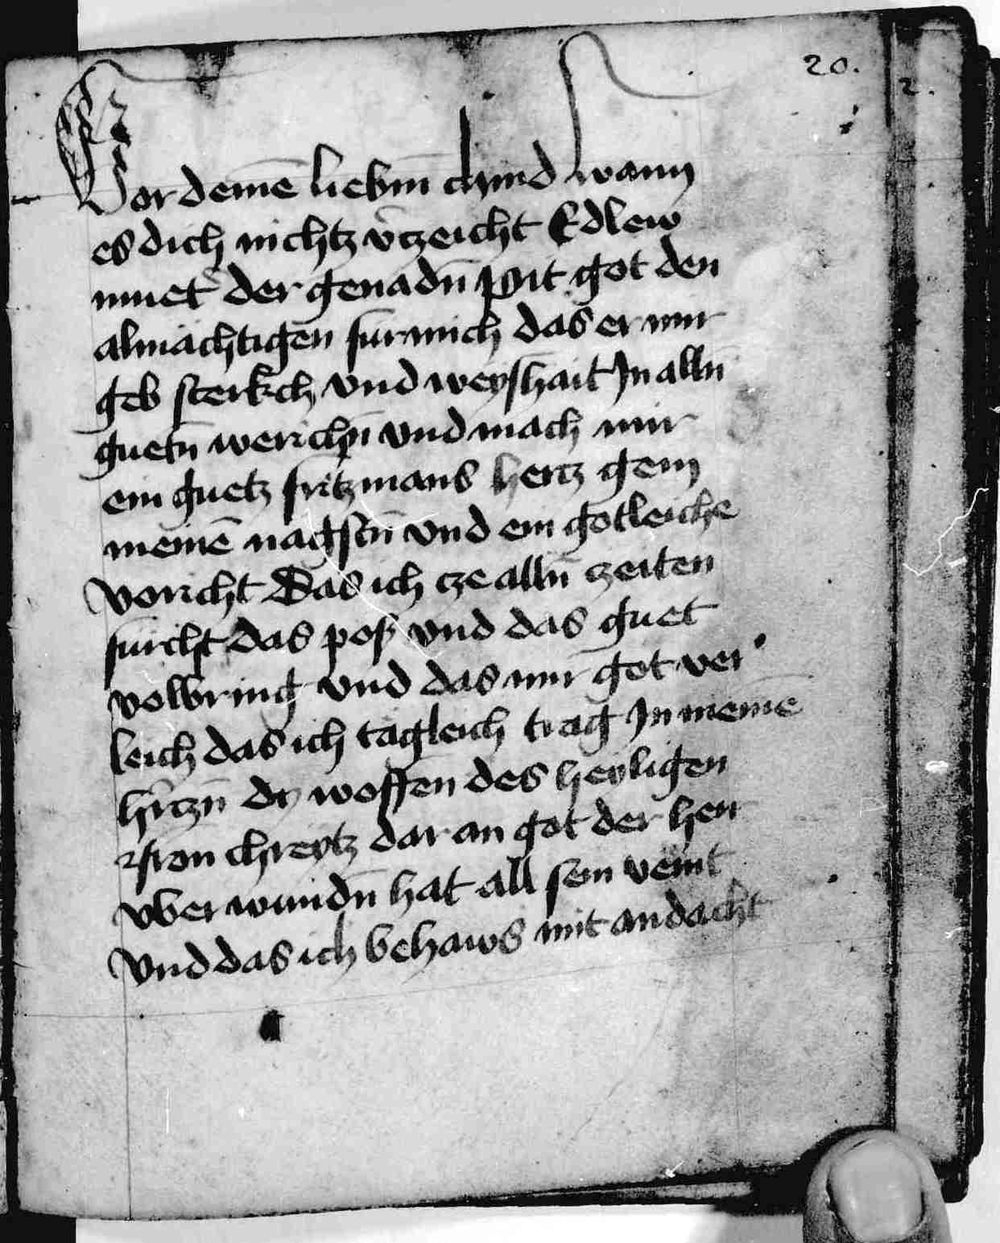 20.
2.
Vor deinē liebm̄ chind wann
es dich nichtz v̄czeicht Edlew
muet̄ der genadn̄ pit got den
almachtigen fur mich das er mir
geb sterkch vnd weyshait In alln̄
guetn̄ werichn̄ vnd mach mir
ein guetz sritzmans hertz gem
meinē nagstn̄ vnd ein gotleiche
voricht Das ich cze alln̄ czeiten
furcht das poß vnd das guet
volbring vnd das mir got ver
leich das ich tagleich trag In meinē
hr̄czn̄ dy woffen des heyligen
fron chreytz dar an got der herr
vber wundn̄ hat all sein veint
Vnd das ich behaws mit andacht